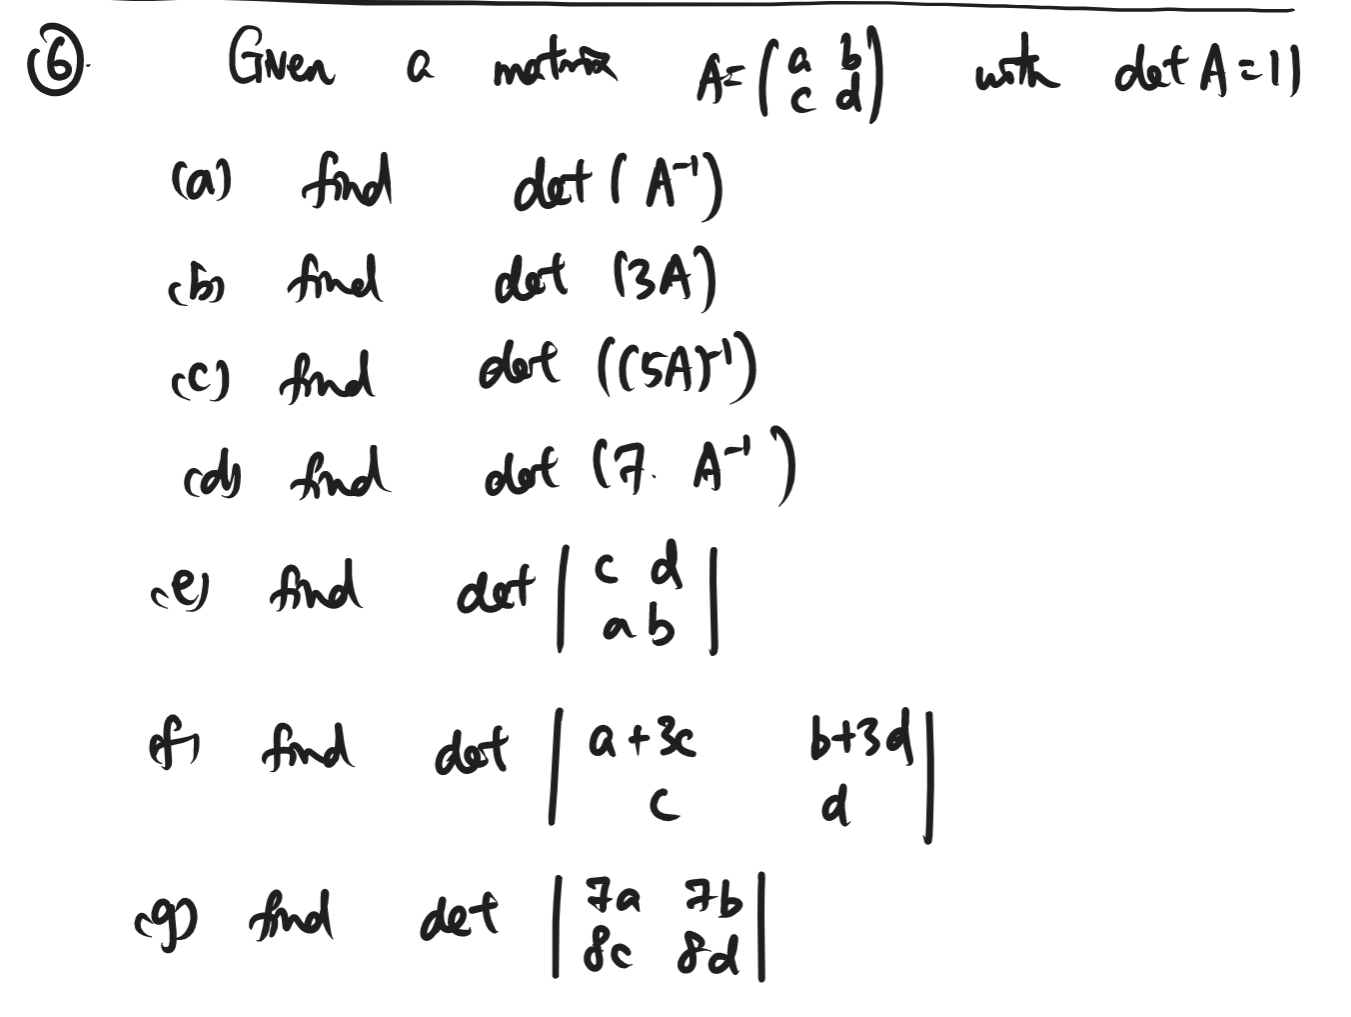 ⑥ Given a matrix A = (a b
c d) with det A = 11
(a) find det (A⁻¹)
(b) find det (3A)
(c) find det ((5A)⁻¹)
(d) find det (7. A⁻¹)
(e) find det |c d
a b|
(f) find det |a+3c b+3d
c d|
(g) find det |7a 7b
8c 8d|